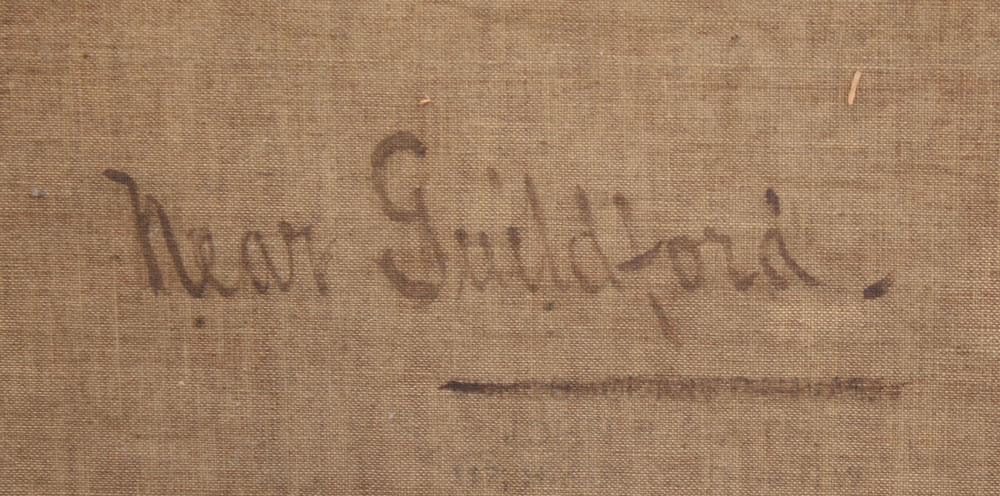 Near Guildford.